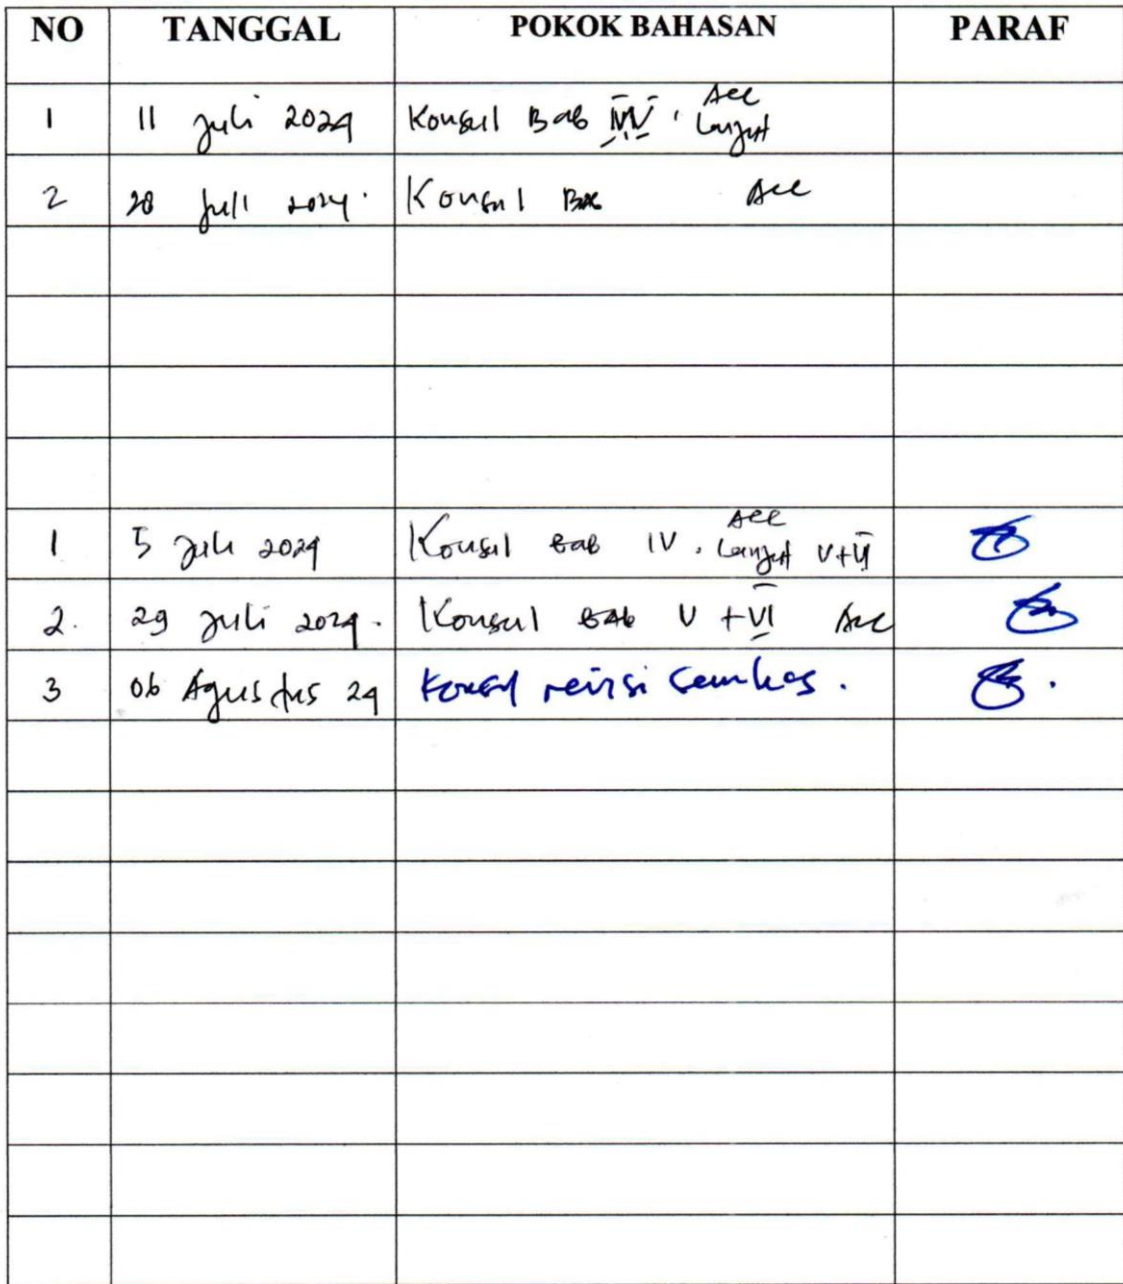 NO TANGGAL POKOK BAHASAN PARAF
1 11 Juli 2024 Konsul Bab IV, Acc Lanjut
2 28 Juli 2024. Konsul Acc
1 5 Juli 2024 Konsul Bab IV, Acc Lanjut V+VI
2. 29 Juli 2024. Konsul BAB V + VI Acc
3 06 Agustus 24 Konsul revisi Semhas.